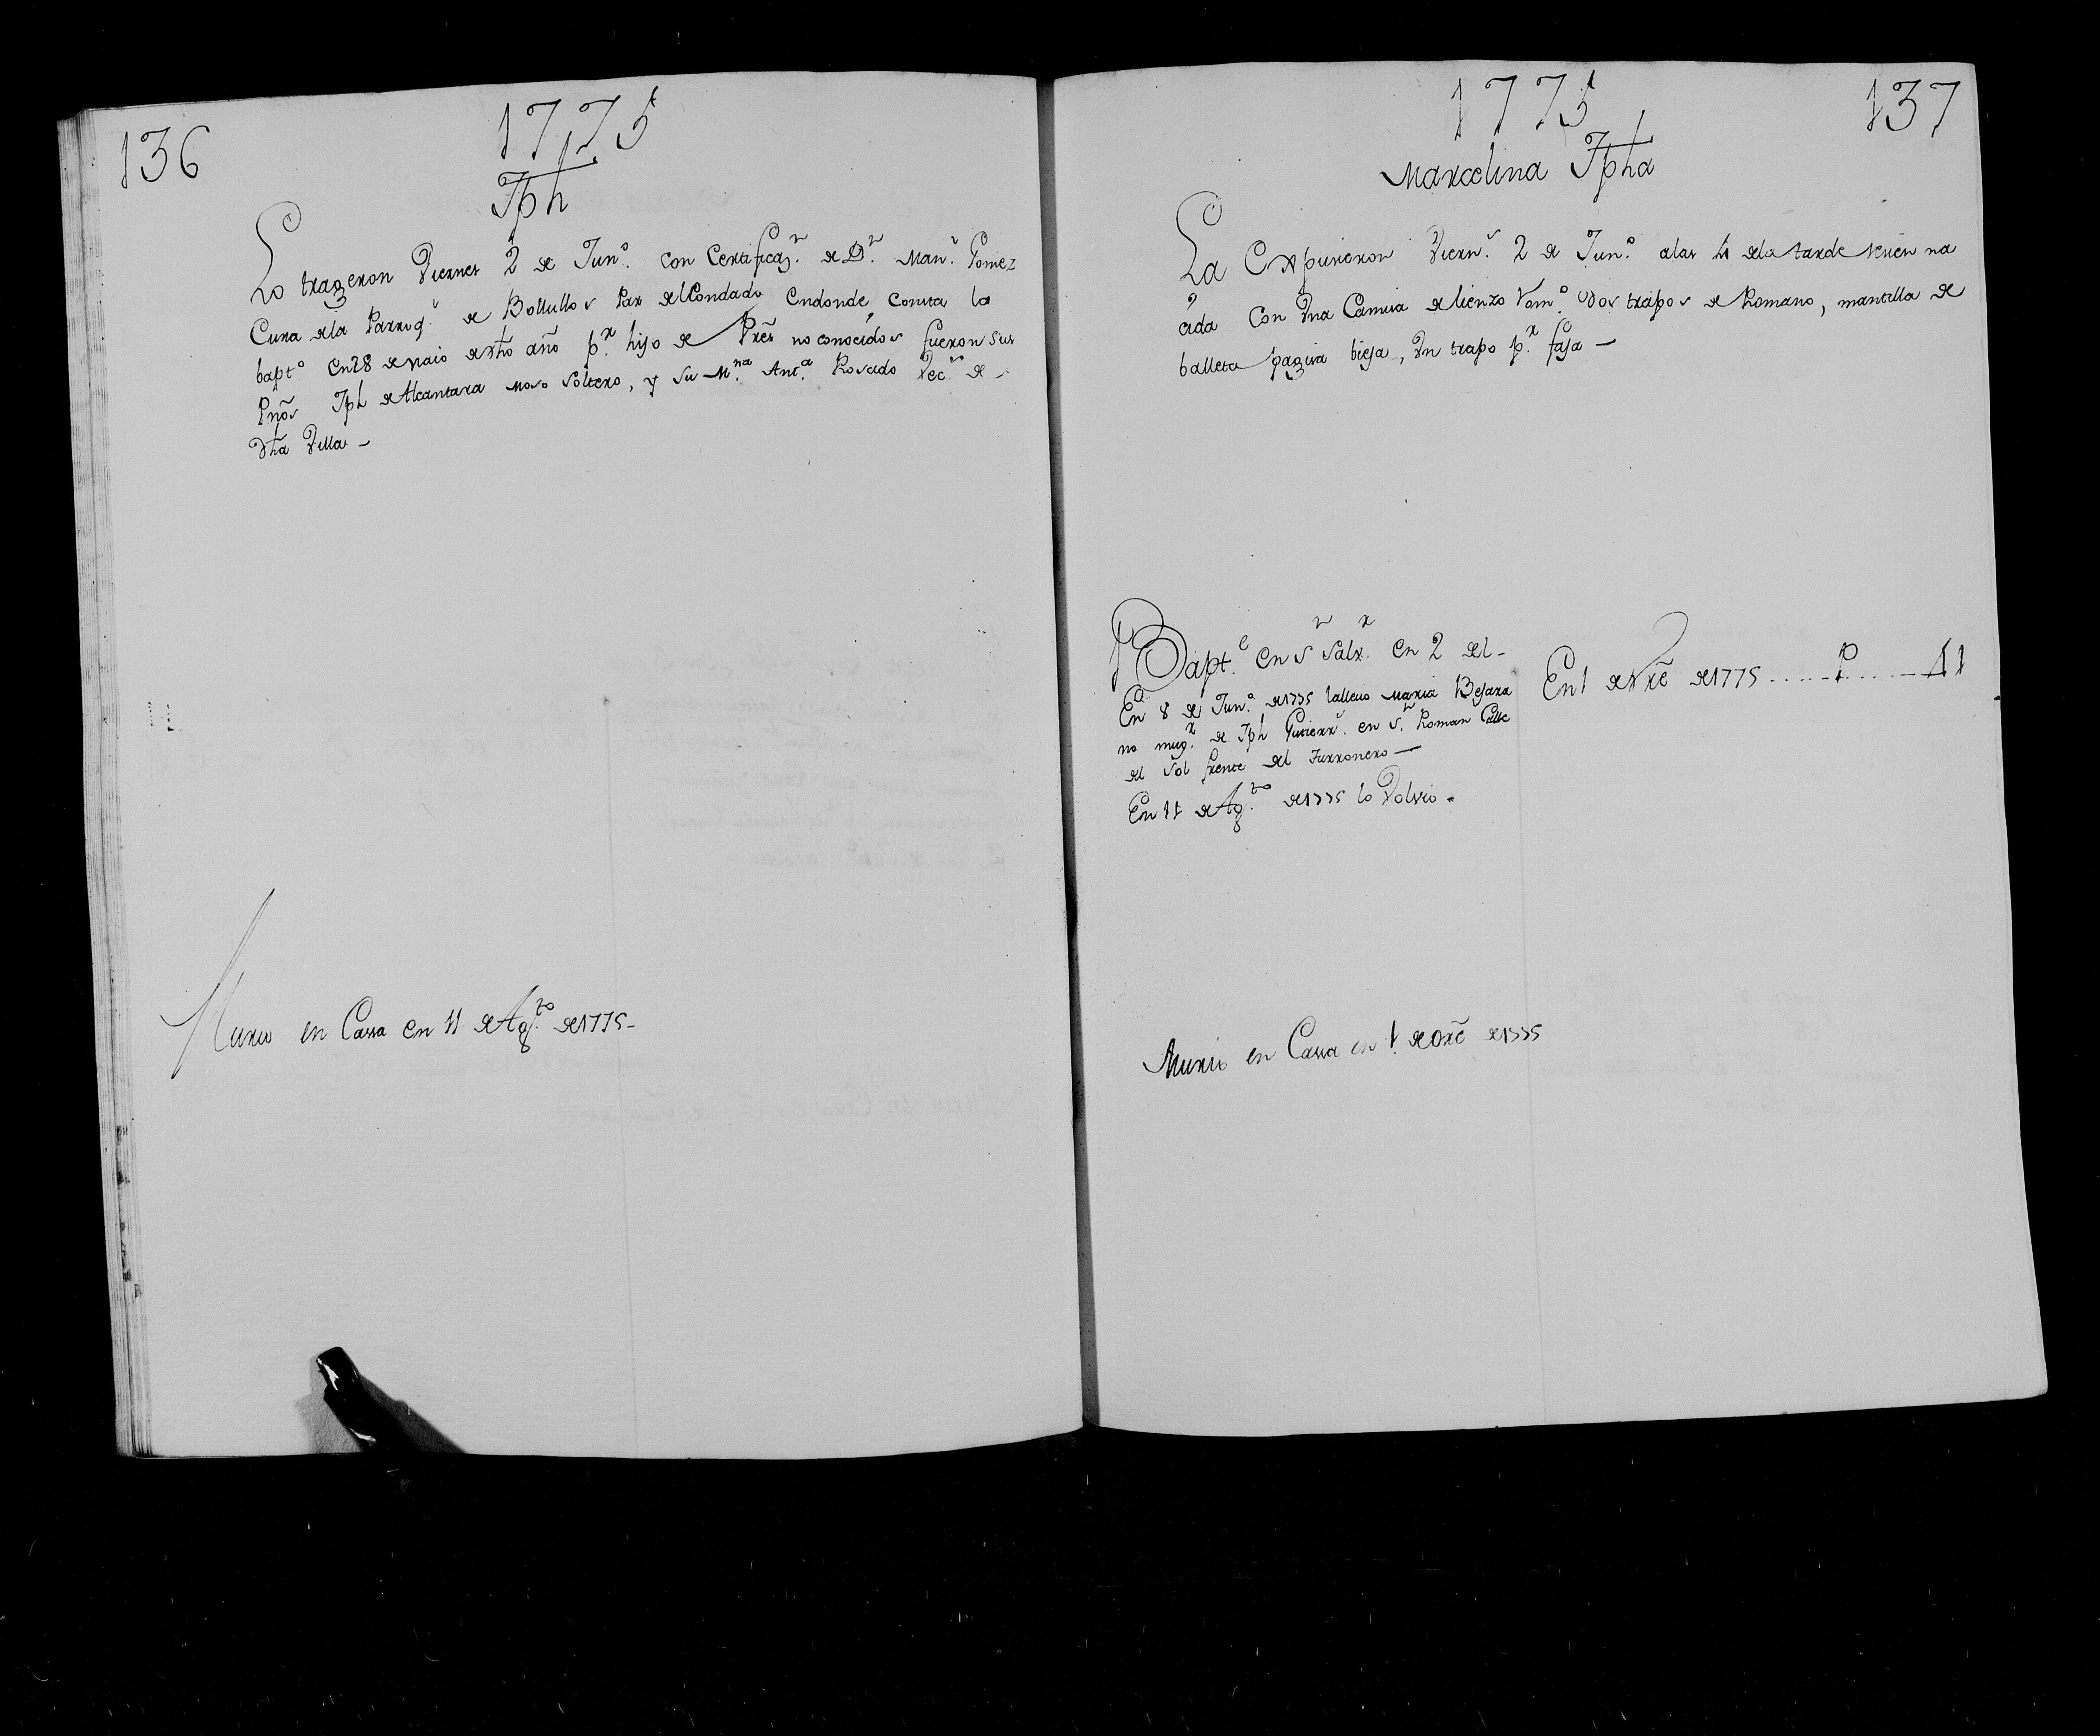 136
1775
Jph
Lo trageron Viernes 2 de Jun.º con Certificaz.n de D.n Man.l Gomez
Cura dela Parroq.l de Bollullos Par del Condado endonde consta la
bapt.º en 28 de Maio de dho año p.r hijo de Pres no conocidos fueron sus
Pnos Jph de Alcantara Moso soltero, y su M.na Ant.a Rosado Vec.s de
dha Villa -
Murio en Cassa en 11 de Ag.to de 1775 -
1775
137
Marcelina Jpha
La Expusieron Viern.s 2 de Jun.º alas 4 dela tarde resien na
cida Con Vna Camisa de lienzo Rom.º dos trapos de Romano, mantilla de
balleta pagisa bieja, Vn trapo p.r faja —
Bapt.e en S.n Salv.r en 2 del -
En 8 de Jun.º de 1775 la llevo Maria Bejara
no mug.r de Jph Gutierr.s en S.n Roman Calle
del Sol frente del Turronero —
En 11 de Ag.to de 1775 lo Volvio.
En 1 de Xre de 1775 ...... P ...... 11
Murio en Cassa en 1. de Xre de 1775